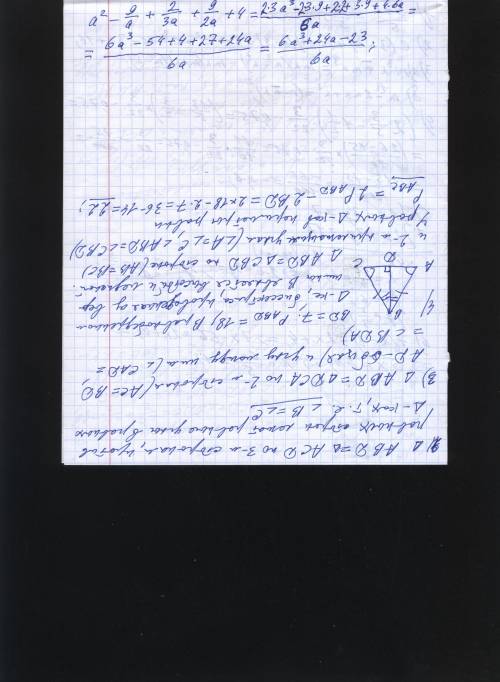 a² - 9/a + 2/3a + 9/2a + 4 = (2·3a³-23·9+2·2+3·9+4·6a)/6a =
= (6a³-54+4+27+24a)/6a = (6a³+24a-23)/6a ;
2) Δ ABD = Δ ACD по 3-м сторонам, против
равных сторон лежат равные углы в равных
Δ-ках, т.е. ∠B = ∠C
3) Δ ABD = Δ DCA по 2-м сторонам (AC = BD,
AD - общая) и углу между ними (∠CAD =
= ∠BDA)
4) BD = 7; P ABD = 18; В равнобедренном
Δ-ке, биссектриса проведенная из вер
шины B является высотой и медианой.
Δ ABD = Δ CBD по стороне (AB = BC)
и 2-м прилежащим углам (∠A = ∠C, ∠ABD = ∠CBD)
У равных Δ-ков периметры равны
P ABC = 2P ABD - 2BD = 2×18 - 2·7 = 36-14 = 22)
B
A D C